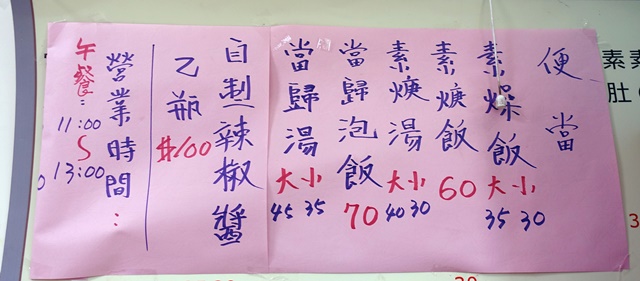 便當
素燥飯 大 小 35 30
素焿飯 60
素焿湯 大 小 40 30
當歸泡飯 70
當歸湯 大 小 45 35
自制辣椒醬
乙瓶 $100
營業時間:
午餐: 11:00 ~ 13:00
素素
肚